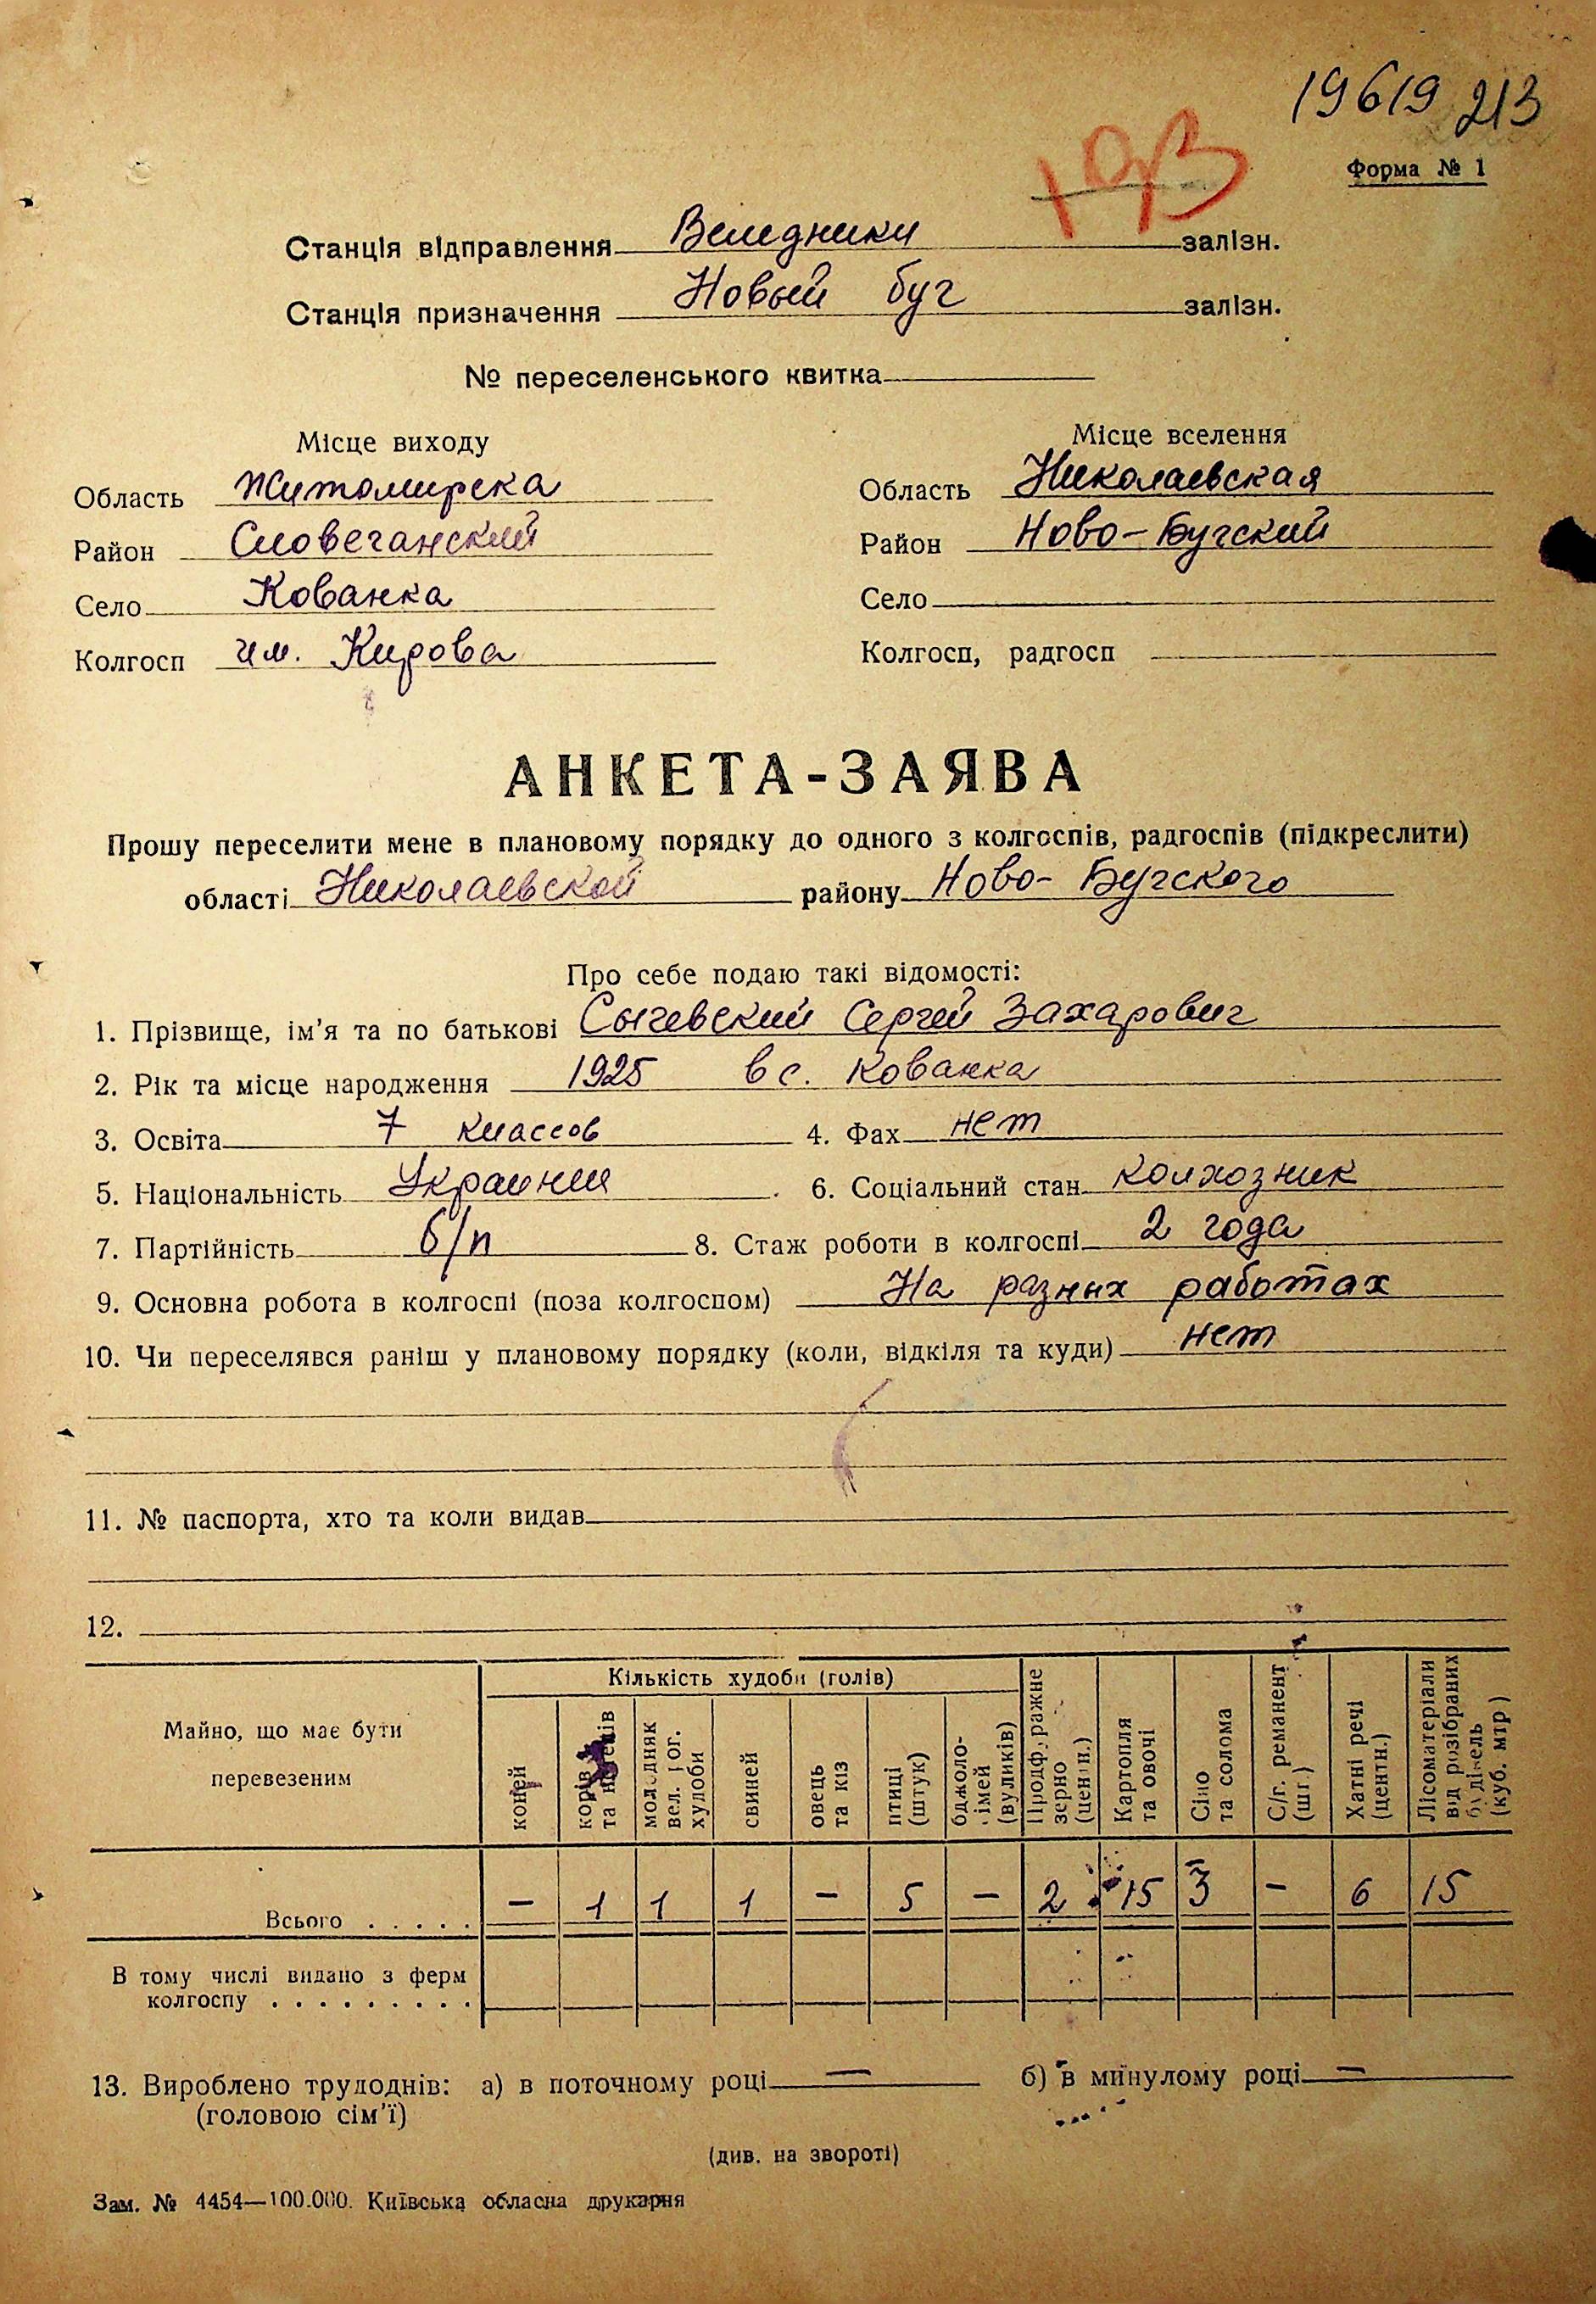 19619 213
193
Форма № 1
Станція відправлення Веледники залізн.
Станція призначення Новый буг залізн.
№ переселенського квитка
Місце виходу
Область Житомирска
Район Словечанский
Село Кованка
Колгосп им. Кирова
Місце вселення
Область Николаевская
Район Ново-Бугский
Село
Колгосп, радгосп
АНКЕТА-ЗАЯВА
Прошу переселити мене в плановому порядку до одного з колгоспів, радгоспів (підкреслити)
області Николаевской району Ново-Бугского
Про себе подаю такі відомості:
1. Прізвище, ім'я та по батькові Сычевский Сергей Захарович
2. Рік та місце народження 1925 в с. Кованка
3. Освіта 7 классов 4. Фах нет
5. Національність Украинец 6. Соціальний стан колхозник
7. Партійність б/п 8. Стаж роботи в колгоспі 2 года
9. Основна робота в колгоспі (поза колгоспом) На разных работах
10. Чи переселявся раніш у плановому порядку (коли, відкіля та куди) нет
11. № паспорта, хто та коли видав
12.
Майно, що має бути
перевезеним
Кількість худоби (голів)
коней
корів
та нетелів
молодняк
вел. рог.
худоби
свиней
овець
та кіз
птиці
(штук)
бджоло-
сімей
(вуликів)
Продфуражне
зерно
(центн.)
Картопля
та овочі
Сіно
та солома
С/г. реманент
(шт.)
Хатні речі
(центн.)
Лісоматеріали
від розібраних
будівель
(куб. мтр)
Всього . . . . . — 1 1 1 — 5 — 2 15 3 — 6 15
В тому числі видано з ферм
колгоспу . . . . . . . . .
13. Вироблено трудоднів: а) в поточному році — б) в минулому році —
(головою сім'ї)
(див. на звороті)
Зам. № 4454—100.000. Київська обласна друкарня